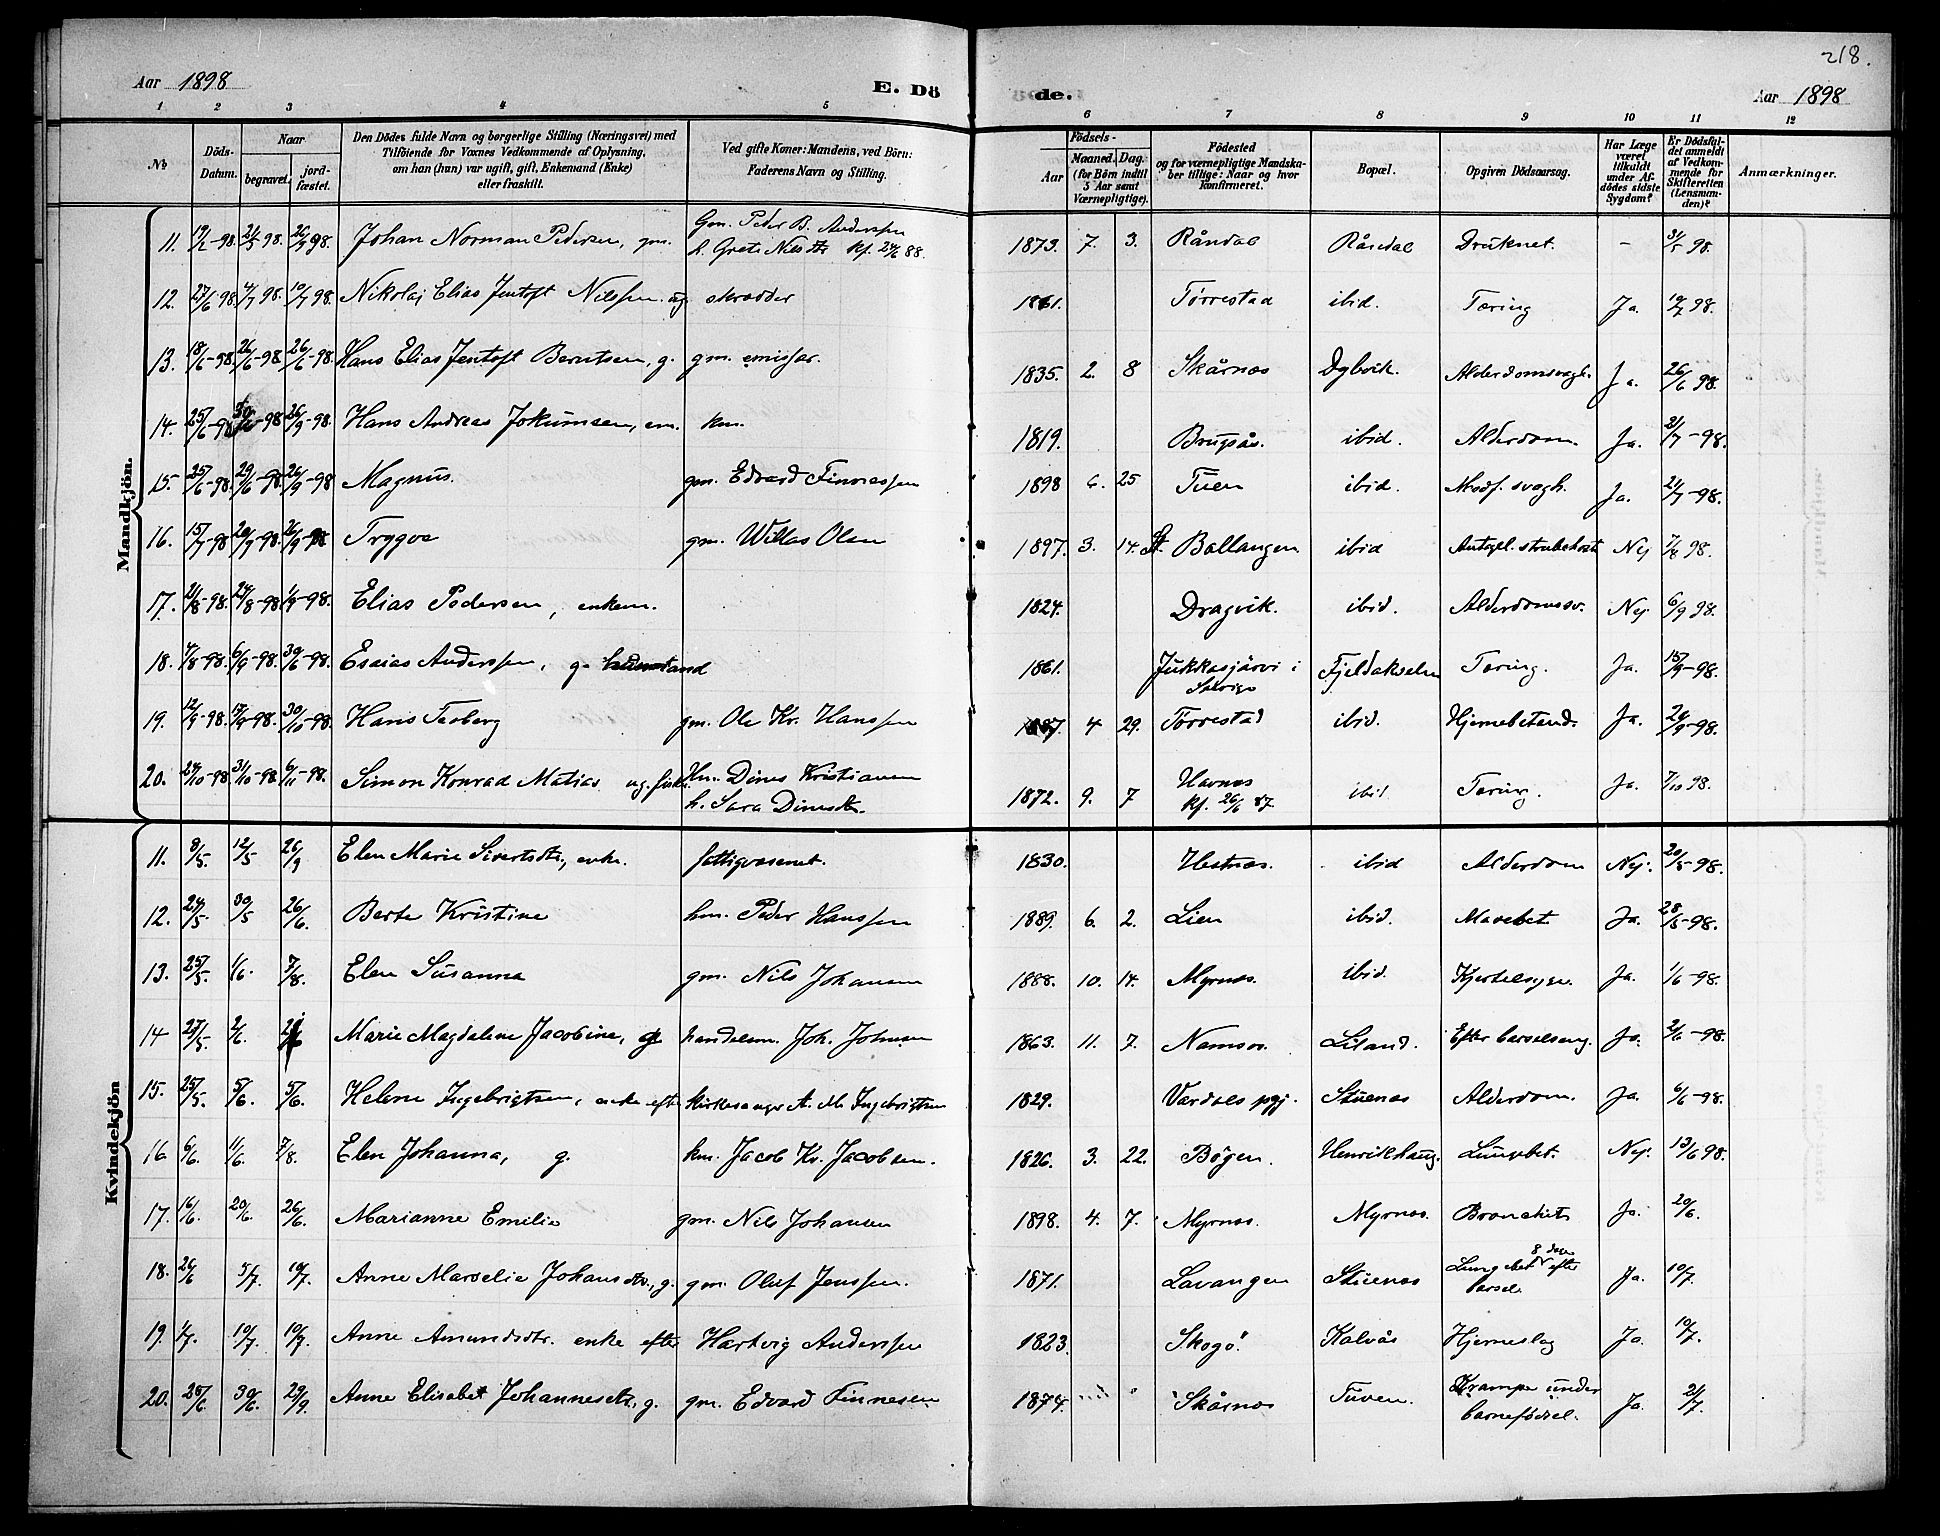 218.
Aar 1898 E. Dö de. Aar 1898
1 2 3 4 5 6 7 8 9 10 11 12
№
Döds-Datum.
Naar
begravet.
jordfæstet.
Den Dödes fulde Navn og borgerlige Stilling (Næringsvei) med
Tilföiende for Voxnes Vedkommende af Oplysning,
om han (hun) var ugift, gift, Enkemand (Enke)
eller fraskilt.
Ved gifte Koner: Mandens, ved Börn:
Faderens Navn og Stilling.
Födsels-
Aar
Maaned. Dag.
(for Börn indtil
5 Aar samt
Værnepligtige).
Födested
og for værnepligtige Mandska-
ber tillige: Naar og hvor
konfirmeret.
Bopæl.
Opgiven Dödsaarsag.
Har Læge
været
tilkaldt
under Af-
dödes sidste
Sygdom?
Er Dödsfal-
det anmeldt
af Vedkom-
mende for
Skifteretten
(Lensman-
den)?
Anmærkninger.
Mandkjön.
11. 98. 98. 26/9 98. Johan Norman Pedersen, gm. Gm. Peder B. Anderssen 1873. 7. 3. Råndal Råndal Druknet. - 98.
h. Grete Nilsdtr kf. 24/6 88.
12. 27/6 98. 4/7 98. 10/7 98. Nikolaj Elias Jentoft Nilssen. ug skrædder 1861. Tørrestad ibid. Tæring Ja. 98.
13. 18/6-98. 26/6-98 26/6-98. Hans Elias Jentoft Berntsen, g. gm. emissær. 1835. 2. 8 Skårnes Dybvik. Alderdomssvagh. Ja. 26/6 98.
14. 25/6-98 -98 26/9-98. Hans Andreas Jokumsen, em. km. 1819. Brugsås. ibid. Alderdom. Ja. 21/7-98.
15. 25/6-98. 29/6-98 26/9-98 Magnus. gm. Edvard Finnessen 1898 6. 25 Tuen ibid. Medf. svagh. Ja. 21/7-98.
16. 15/7-98 20/7-98. 26/9-98 Trygve gm. Willas Olsen 1897. 3. 14. Ballangen ibid Antagel. strubehoste Nej 7/8 98.
17. 21/8-98. 24/8-98 1/9-98. Elias Pedersen, enkem. 1824. Dragvik. ibid. Alderdomssv. Nej. 6/9 98.
18. 4/8-98. 6/9-98. -98. Esaias Anderssen, g. 1861. Jukkasjärvi i Fjeldakselen Tæring. Ja. 15/9-98.
Sverige
19. 12/9-98. 17/9-98. 30/10-98. Hans Tedberg gm. Ole Kr. Hanssen 4 29. Tørrestad ibid. Hjernebetænd. Ja. 24/9-98.
20. 24/10-98. 31/10-98. 6/11-98. Simon Konrad Matias ug. Hm. Dines Kristiansen 1872. 9. 7 Havnes ibid Tæring. Ja. 7/10 98.
h. Sara Dinesdtr. kf. 26/6 87.
Kvindekjön
11. 8/5. 12/5 26/9 Elen Marie Sivertsdtr., enke. fattigvæsenet. 1830. Hestnes. ibid Alderdom Nej. 20/5-98.
12. 24/5. 30/5 26/6. Berte Kristine hm. Peder Hanssen 1889. 6. 2. Lien ibid. Mavebet. Ja. 28/5-98.
13. 25/5. 1/6. 7/8. Elen Susanna gm. Nils Johansen 1888. 10. 14. Myrnes. ibid. Kjertelsyge. Ja. 1/6-98.
14 27/5. 2/6. Marie Magdalene Jacobine, g. handelsm. Joh. Johnsen 1863. 11. 7. Namsos. Liland. Efter barselseng. Ja. 2/6-98.
15. 25/5. 5/6. 5/6. Helene Ingebrigtsen, enke efter kirkesanger A. M. Ingebrigtsen 1829. Værdals pgj. Stuenes Alderdom. Ja. 6/6-98.
16. 6/6. 11/6. 7/8. Elen Johanna, g. km. Jacob Kr. Jacobsen. 1826. 3. 22. Bøgen. Henrikhaug. Lungebet. Nej. 13/6 98.
17. 16/6. 20/6. 26/6. Marianne Emilie gm. Nils Johansen 1898. 4. 7. Myrnes. Myrnes. Bronchit Ja. 20/6.
18. 26/6 5/7. 10/7. Anne Marselie Johansdtr., g. gm. Oluf Jenssen. 1871. Lavangen Stuenes Lungebet 8 dage efter Ja. 10/7.
barsel.
19. 1/7. 10/7. 10/7. Anne Amundsdtr. enke efter Hartvig Anderssen 1823. Skogø. Kalvås Hjerneslag Ja. 10/7.
20. 25/6. 30/6. 29/9. Anne Elisabet Johannesdtr., g. gm. Edvard Finnesen 1874. Skårnes Tuven. Krampe under Ja. 21/7.
barnefødsel.